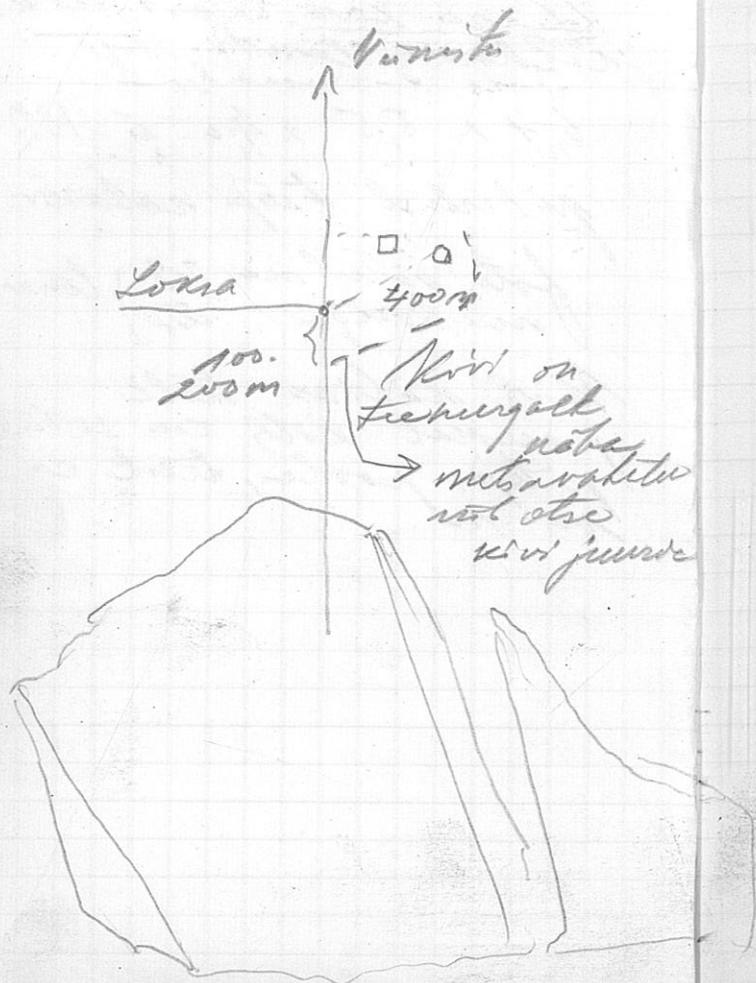 Viinistu
Loksa
400m
100.
200m
Kivi on
teenurgalt
näha
metsavahetee
viib otse
kivi juurde